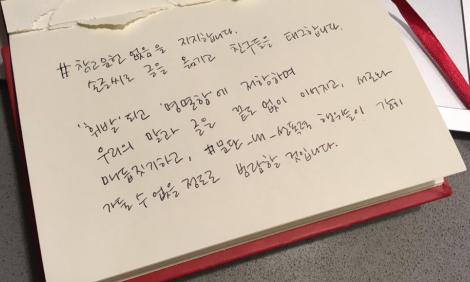 #참고문헌 없음을 지지합니다.
손글씨로 글을 옮기고 친구들을 태그합니다.
'휘발'되고 '명명함'에 저항하며
우리의 말과 글을 끝도 없이 이어지고, 서로와
매듭짓기하고, #문단_내_성폭력 행수들이 감히
가늠할 수 없을 정도로 방람할 것입니다.